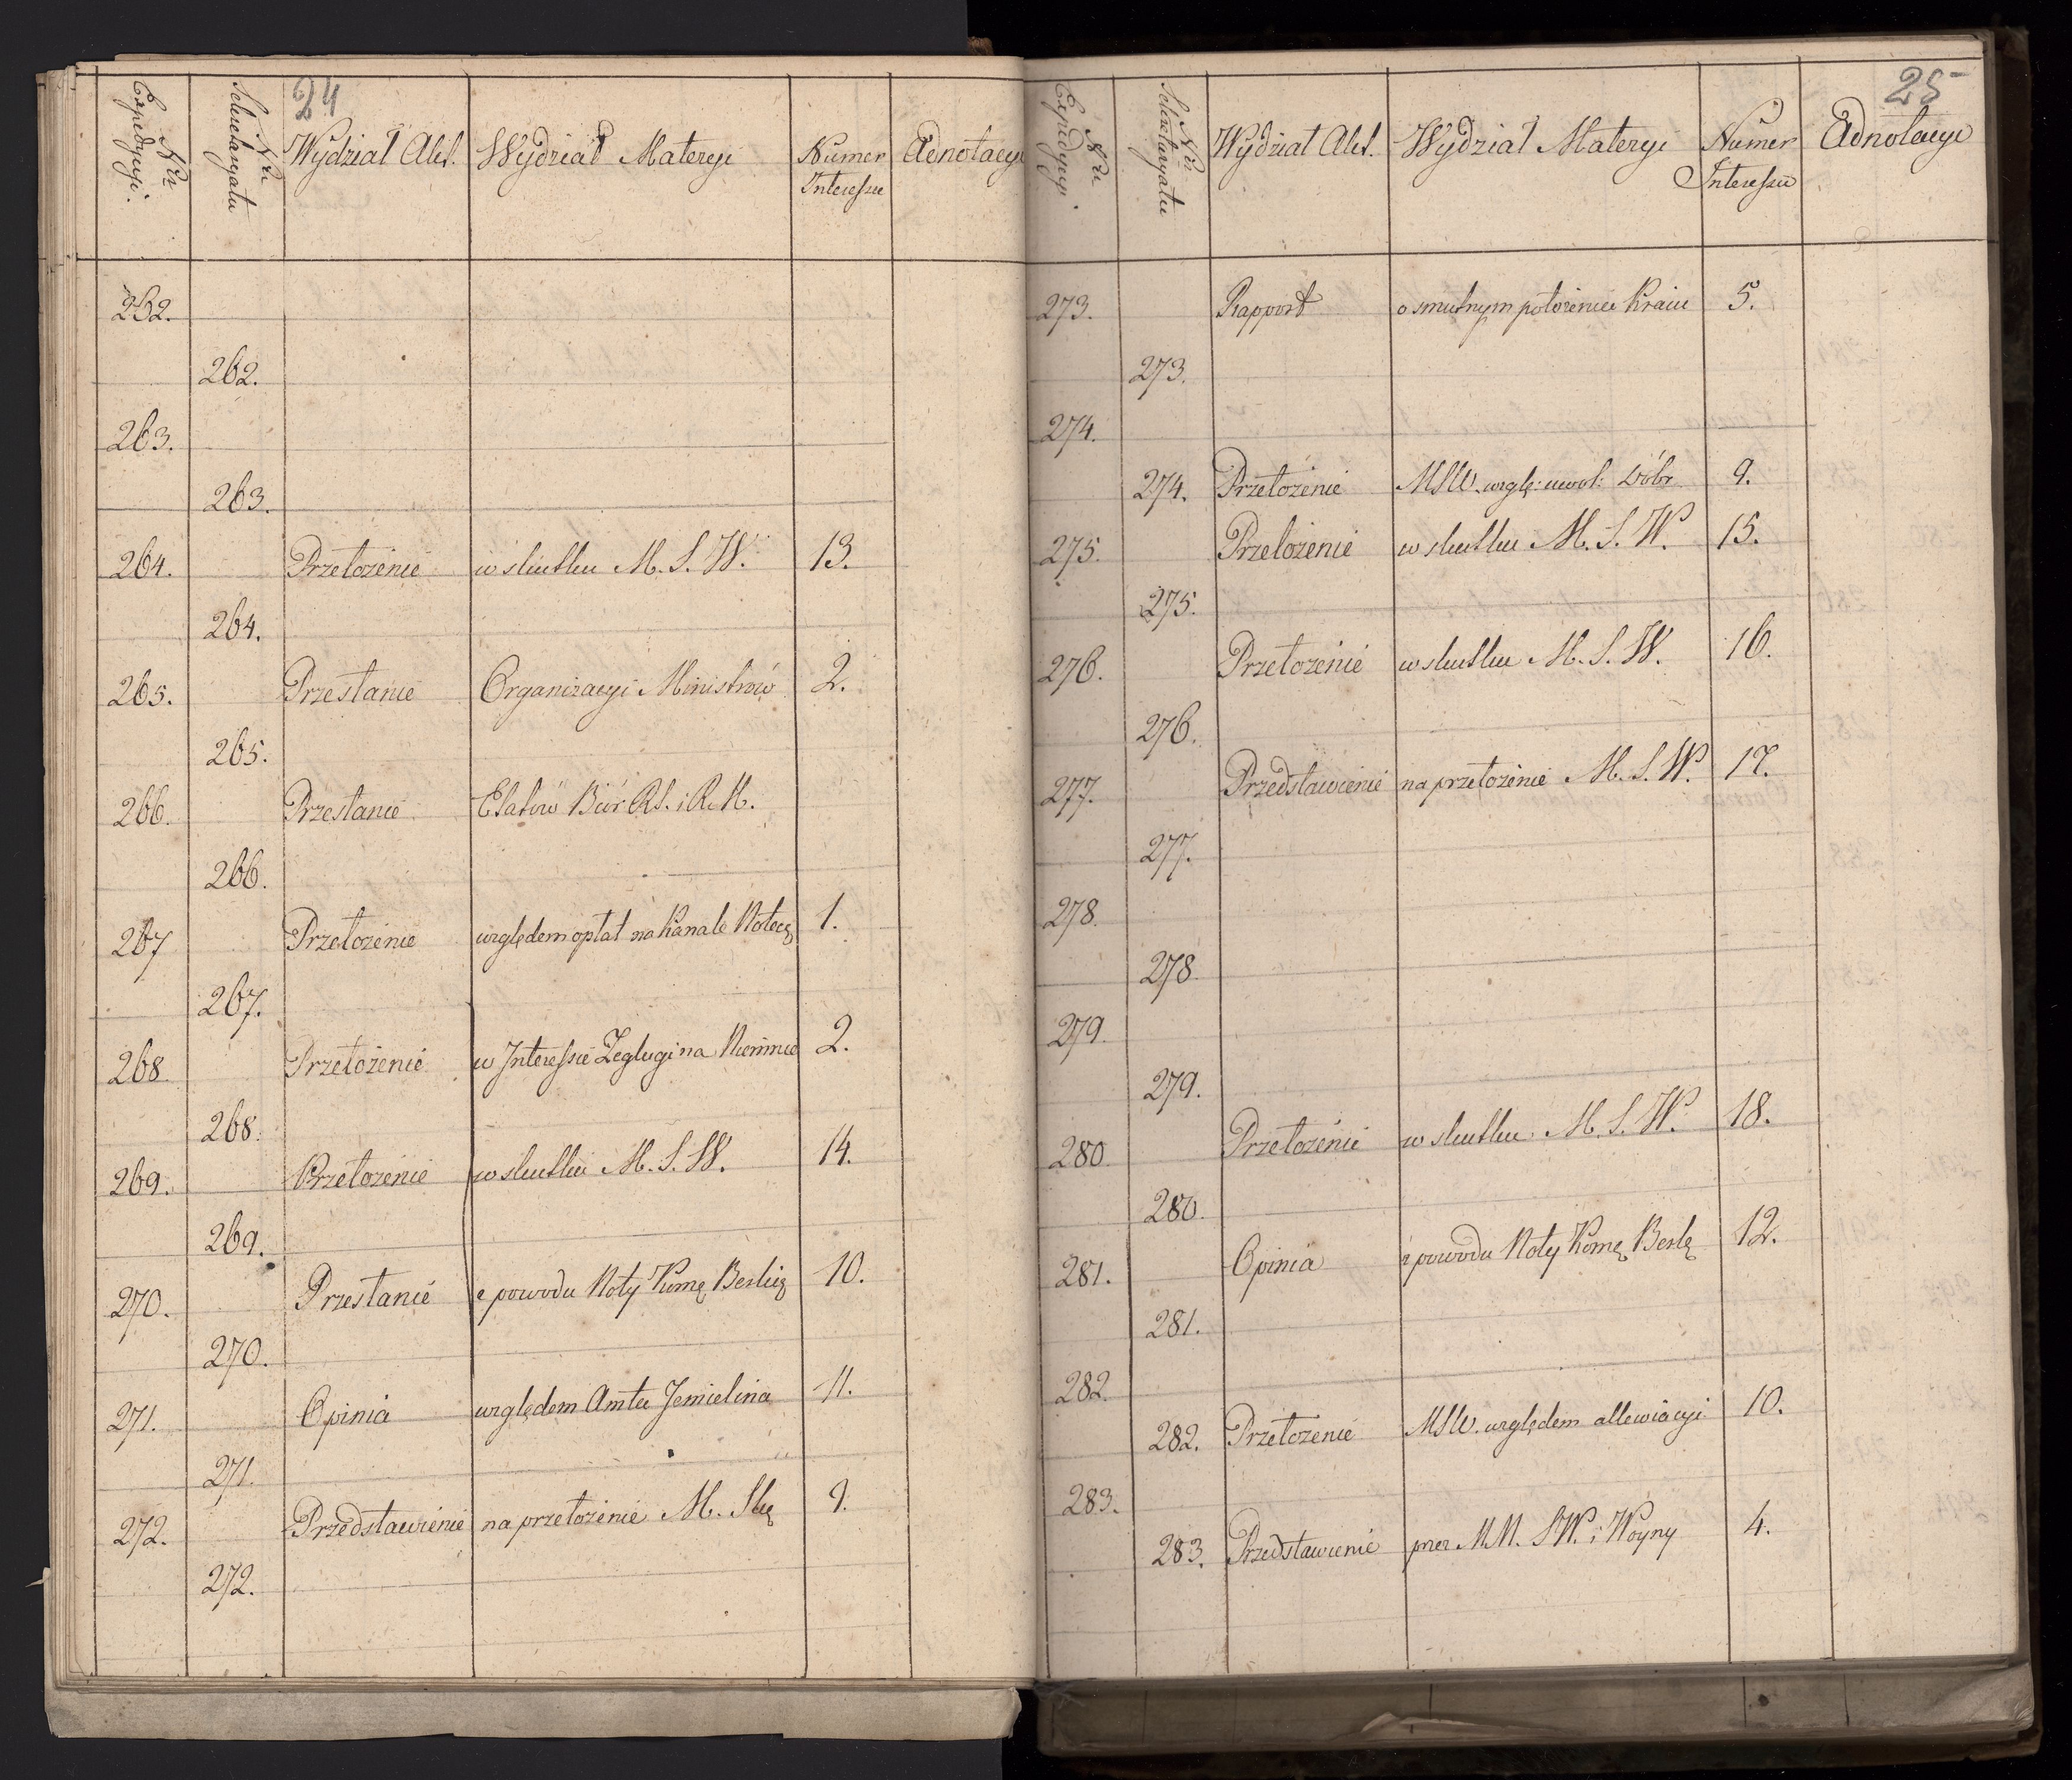 24
Nru Expedycyi.
Nru Sekretaryatu
Wydział Akt.
Wydział Materyi
Numer Interessu
Adnotacye
262.
262.
263.
263.
264. Przełożenie w skutku M. S. W. 13.
264.
265. Przesłanie Organizacyi Ministrów 2.
265.
266. Przesłanie Etatów Biór RS. i R. M.
266.
267 Przełożenie względem opłat na Kanale Notecą 1.
267.
268. Przełożenie w Interessie Żeglugi na Niemnie 2.
268.
269. Przełożenie w skutku M. S. W. 14.
269.
270. Przesłanie z powodu Noty Komę Berlię 10.
270.
271. Opinia względem Amtu Jemielina 11.
271.
272. Przedstawienie na przełożenie M. Skę 9.
272.
25
Nru Expedycyi.
Nru Sekretaryatu
Wydział Akt.
Wydział Materyi
Numer Interessu
Adnotacye
273. Rapport o smutnym położeniu Kraiu 5.
273.
274.
274. Przełożenie MSW. wzglę: uwol: Dóbr 9.
275. Przełożenie w skutku M. S. W. 15.
275.
276. Przełożenie w skutku M. S. W. 16.
276.
277. Przedstawienie na przełożenie M. S. W. 17.
277.
278.
278.
279.
279.
280. Przełożenie w skutku M. S. W. 18.
280.
281. Opinia z powodu Noty Komę Berlę 12.
281.
282.
282. Przełożenie MSW. względem allewiacyi 10.
283.
283. Przedstawienie przez MM. SW. i Woyny 4.